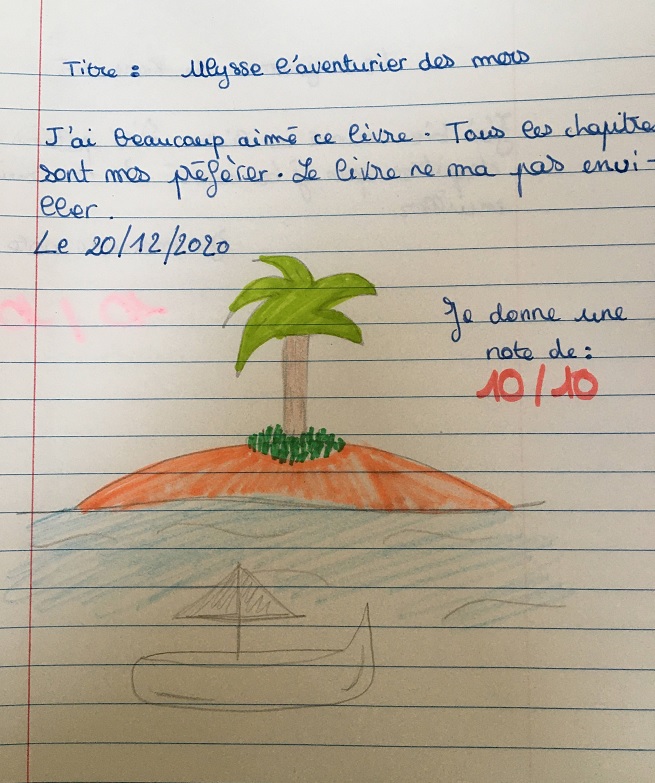 Titre : Ulysse l'aventurier des mers
J'ai beaucoup aimé ce livre. Tous les chapitre
sont mes préférer. Le livre ne ma pas envi-
eller.
Le 20/12/2020
Je donne une
note de :
10/10